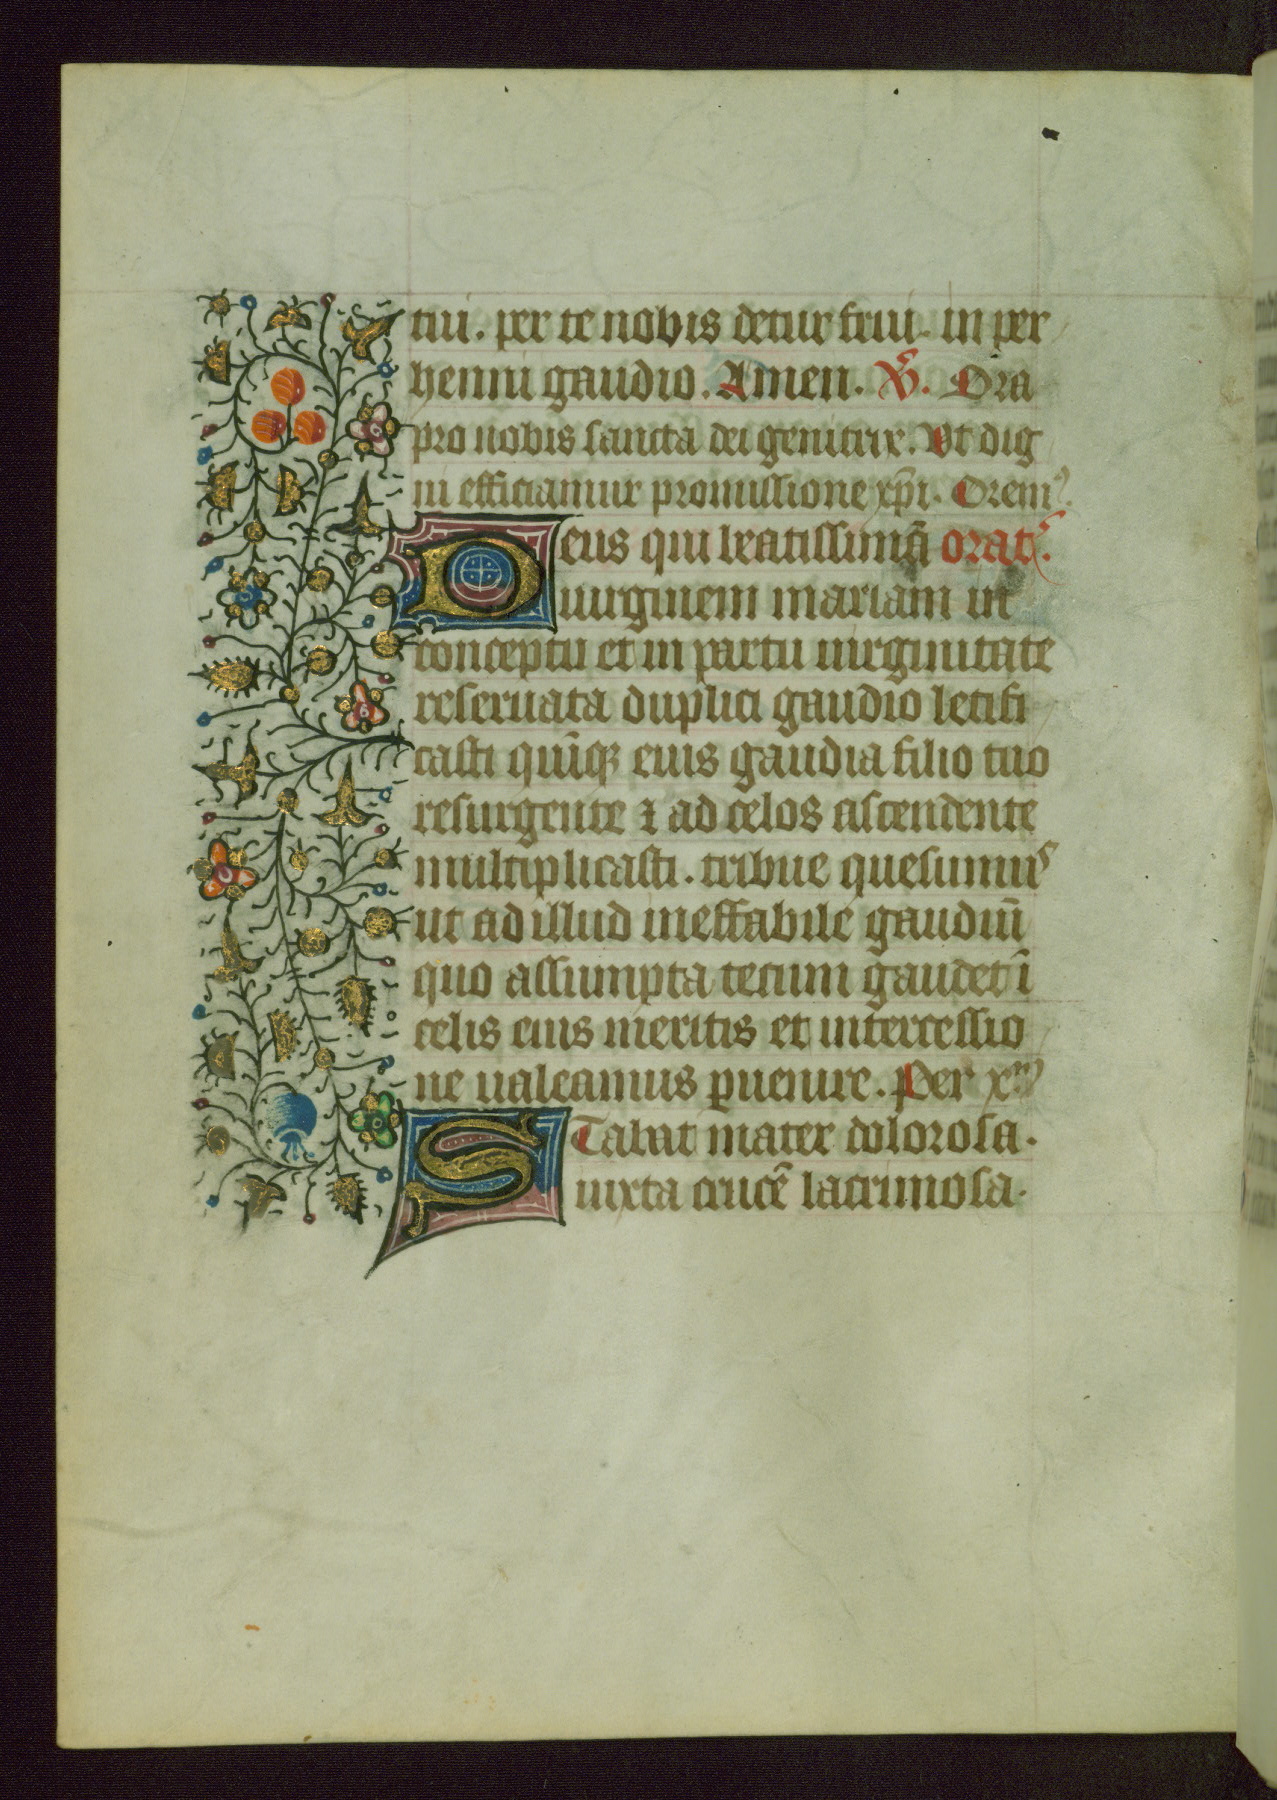 tui. per te nobis detur frui. in per
henni gaudio. Amen. V̉. Ora
pro nobis sancta dei genitrix. Ut dig
ni efficiamur promissione xp̄i. Orem᷒.
Deus qui beatissimā orat᷒.
uirginem mariam in
conceptu et in partu uirginitate
seruata duplici gaudio letifi
casti quīqꝫ eius gaudia filio tuo
resurgente ⁊ ad celos ascendente
multiplicasti. tribue quesumus
ut ad illud ineffabile gaudiū
quo assumpta tecum gaudet ī
celis eius meritis et intercessio
ne ualeamus ꝑuenire. Per xp̄m
STabat mater dolorosa.
iuxta crucē lacrimosa.